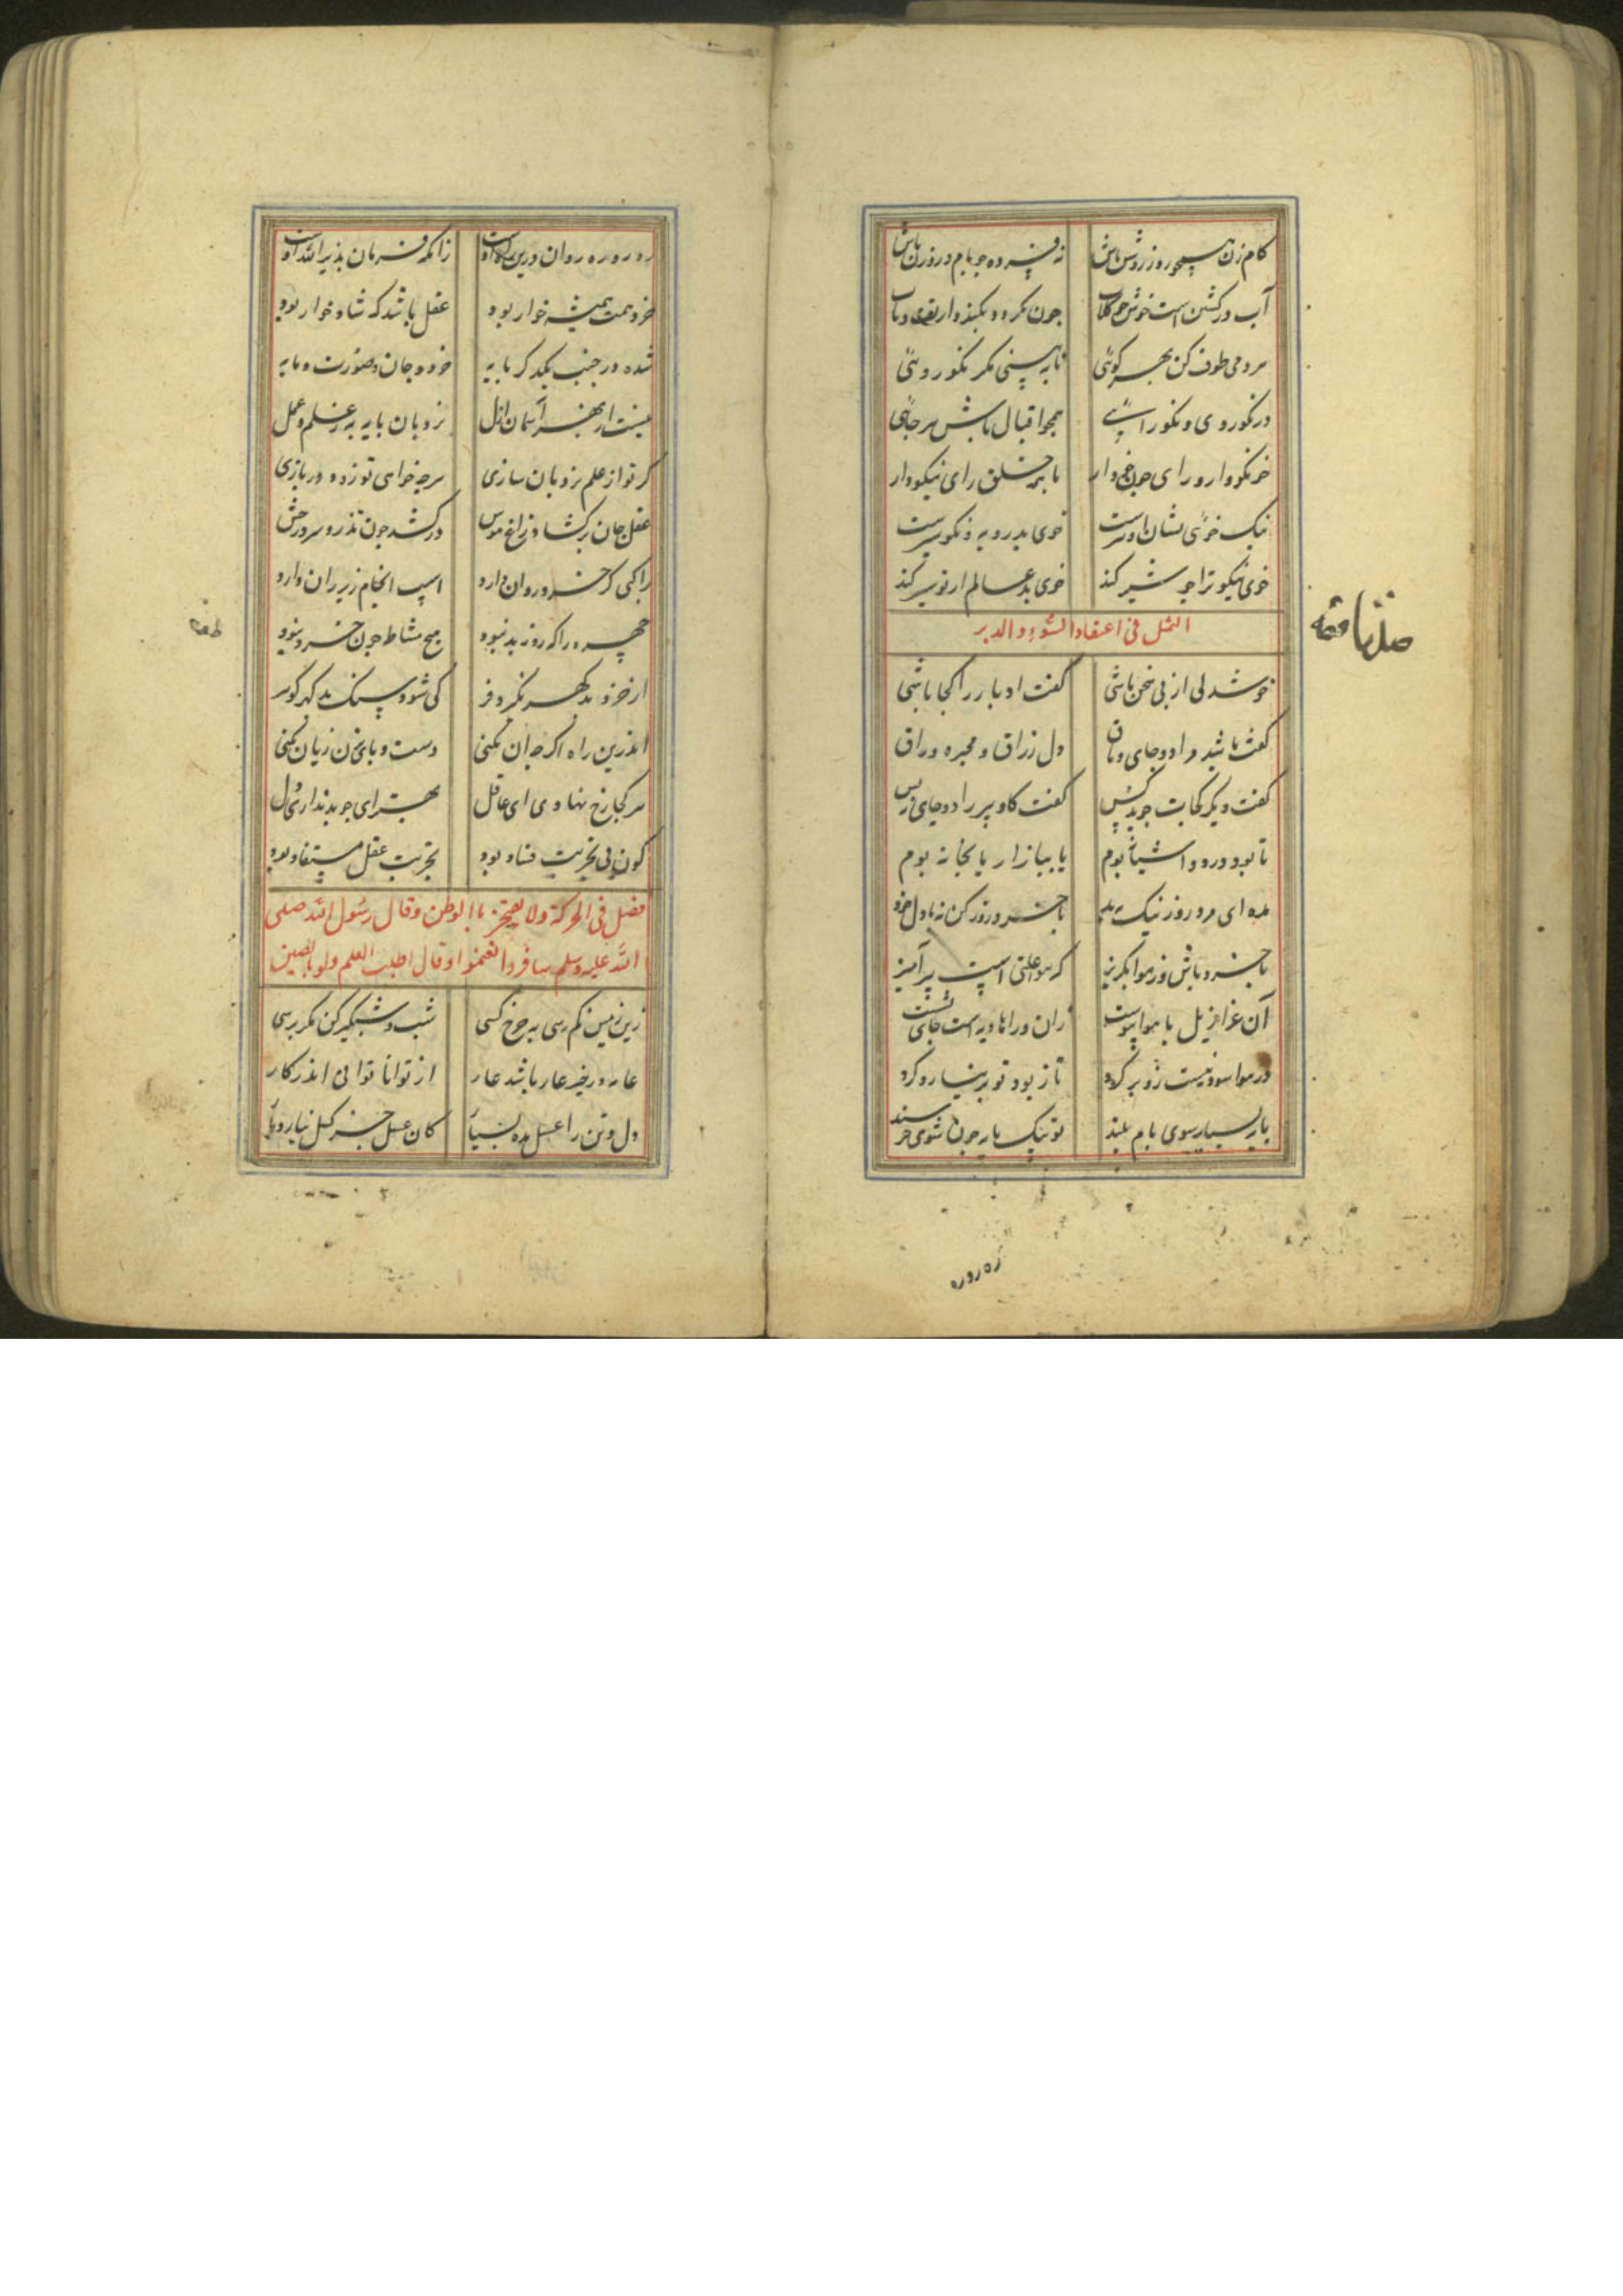 کام زن همچو روز روشن باش نه فسرده چو بام و روزن باش
آب در کشتن است خوش چو گلاب چون نگردد بگندد از تف و تاب
مردمی طوف کن بهر کوئی تا ببینی مگر نکو روئی
در نکوروی و نکو رائی همچو اقبال باش هر جائی
خر نکو دار و رای چون خر دار با همه خلق رای نیکو دار
نیک خوئی نشان
خوی نیکو ترا چو شیر کند خوی بد عالم از تو سیر کند
المثل فی اعتقاد السوء و الدبر
خوشدلی از پی سخن باشی گفت ادبار را کجا باشی
گفت باشد مرا دو جای وثاق دل زراق و محبره وراق
گفت دیگر کجات جوید کس گفت کاو پیر را دو جای
تا بود درود آشیانه بوم یا ببازار یا بخانه بوم
مده ای مرد روز نیک با خرد روز کن نه با دل خود
با خرد باش وز هوا بگریز که هوا علتی است پر آمیز
آن عزازیل با هوا پیوست زان ورا هاویه است جای نشست
در هوا سود نیست زو بر گرد تا ز بود تو بر نیارد گرد
پایه بسیار سوی بام بلند تو بیک پایه چون شوی خرسند
ره رو ره
ره رو ره روان درین راه اوست زانکه فرمان پذیر الله اوست
خرد همت همیشه خوار بود عقل باشد که شادخوار بود
شده در جنب یکدگر پایه خرد و جان و صورت و مایه
نیست از بهر آسمان ازل نردبان پایه به ز علم و عمل
گر تو از علم نردبان سازی هر چه خواهی تو زود دریازی
عقل جان برکشاد زاغ هوس در کشد چون تذرو سرو
راکبی کز خرد روان دارد اسب انجام زیر ران دارد
چهره را که روز بد نبود هیچ مشاطه چون خرد نبود
از خرد بد گهر نگیرد فر کی شود سنگ بد گهر گوهر
اندرین راه اگر چه آن نکنی دست و پای بزن زیان نکنی
هر کجا رخ نهادی ای عاقل بهتر ای جو بد نداری دل
کون بی تجربت فساد بود تجربت عقل مستفاد بود
فصل فی الحرکة ولا یعجز بالوطن و قال رسول الله صلی
الله علیه وسلم سافروا تغنموا و قال اطلب العلم ولو بالصین
زین زمین کم رسی به چرخ کسی شب و شبگیر کن مگر برسی
عار در خیر عار باشد عار از توانا توانی اندر کار
دل و تن را عسل مده بسیار کان عسل جز کسل نیارد بار